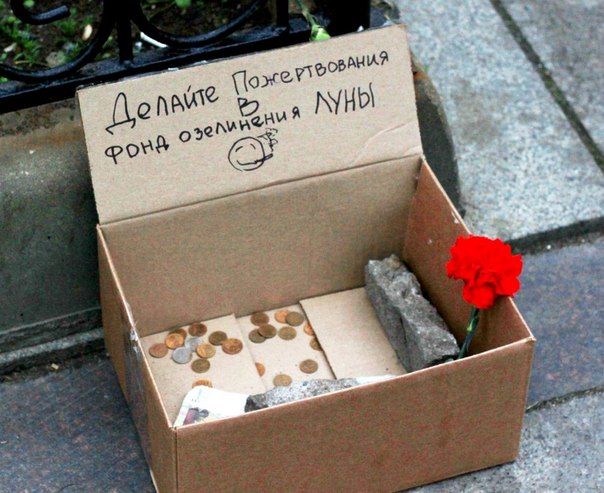 Делайте Пожертвования
В
ФОНД озелинения ЛУНЫ